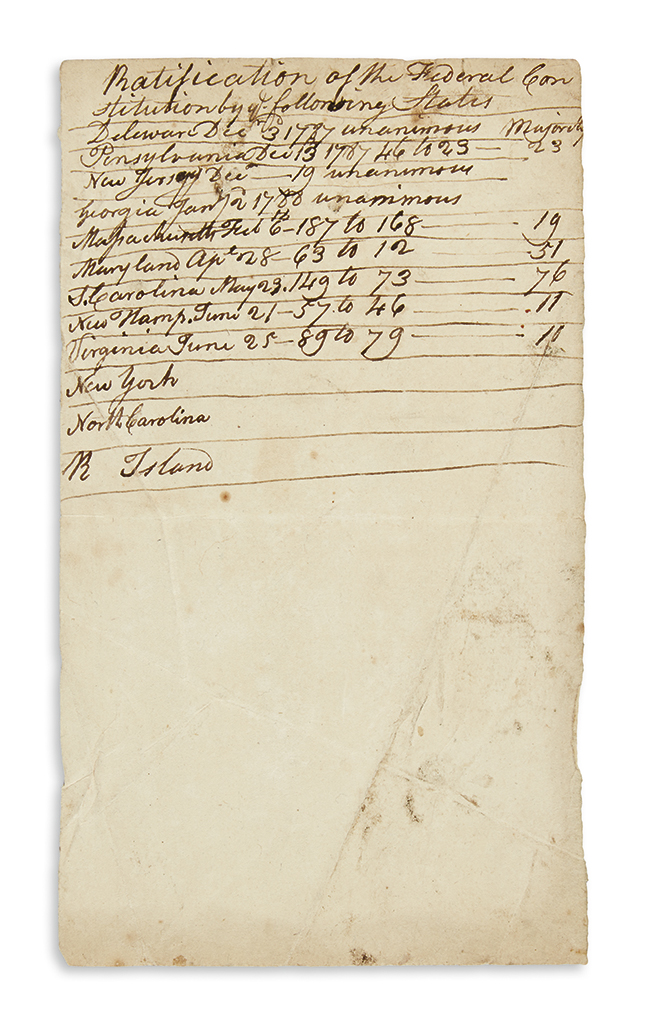 Ratification of the Federal Con
stitution by ye following States
Deleware Decr 3 1787 unanimous Majority
Pensylvania Dec 13 1787 46 to 23 — 23
New Jersey Decr — 19 unanimous
Georgia Jany 2 1788 unanimous
Massachusetts Feb 6th - 187 to 168 — 19
Maryland Apl 28 - 63 to 12 51
S. Carolina May 23. 149 to 73 — 76
New Hamp. June 21 - 57 to 46 — 11
Virginia June 25 - 89 to 79 — 11
New York
North Carolina
R Island